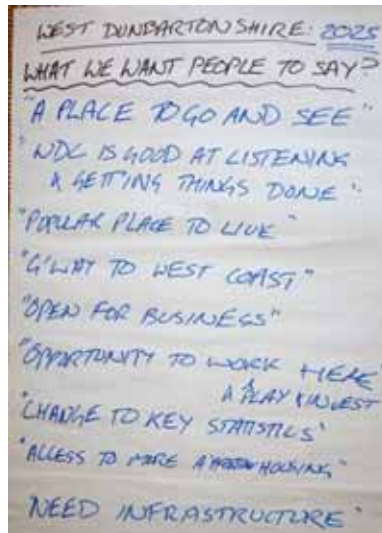 WEST DUNBARTONSHIRE: 2025
WHAT WE WANT PEOPLE TO SAY?
"A PLACE TO GO AND SEE"
"WDC IS GOOD AT LISTENING
& GETTING THINGS DONE"
"POPULAR PLACE TO LIVE"
"G'WAY TO WEST COAST"
"OPEN FOR BUSINESS"
"OPPORTUNITY TO WORK HERE"
& PLAY & INVEST
"CHANGE TO KEY STATISTICS"
"ACCESS TO MORE HOUSING"
"NEED INFRASTRUCTURE"